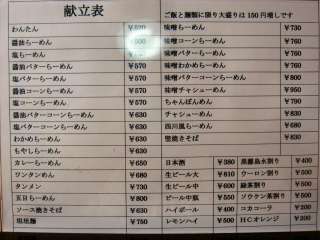 献立表
わんたん ¥570
醤油らーめん
塩らーめん ¥570
醤油バターらーめん ¥630
塩バターらーめん ¥630
醤油コーンらーめん ¥630
塩コーンらーめん ¥630
醤油バターコーンらーめん
塩バターコーンらーめん
わかめらーめん ¥630
もやしらーめん ¥630
カレーらーめん ¥650
ワンタンめん ¥680
タンメン ¥730
五目らーめん ¥800
ソース焼きそば ¥630
坦坦麺 ¥750
ご飯と麺類に限り大盛りは150円増しです
味噌らーめん ¥730
味噌コーンらーめん ¥780
味噌バターらーめん ¥780
味噌わかめらーめん ¥780
味噌バターコーンらーめん ¥800
味噌チャシューめん ¥950
ちゃんぽんめん ¥790
チャシューめん ¥830
四川風らーめん ¥680
堅焼きそば ¥830
日本酒 ¥380
生ビール大 ¥810
生ビール中 ¥600
ビール中瓶 ¥550
ハイボール ¥400
レモンハイ ¥500
黒霧島水割り ¥400
ウーロン割り ¥500
緑茶割り ¥500
ソウケン茶割り ¥500
コカコーラ ¥200
HCオレンジ ¥200